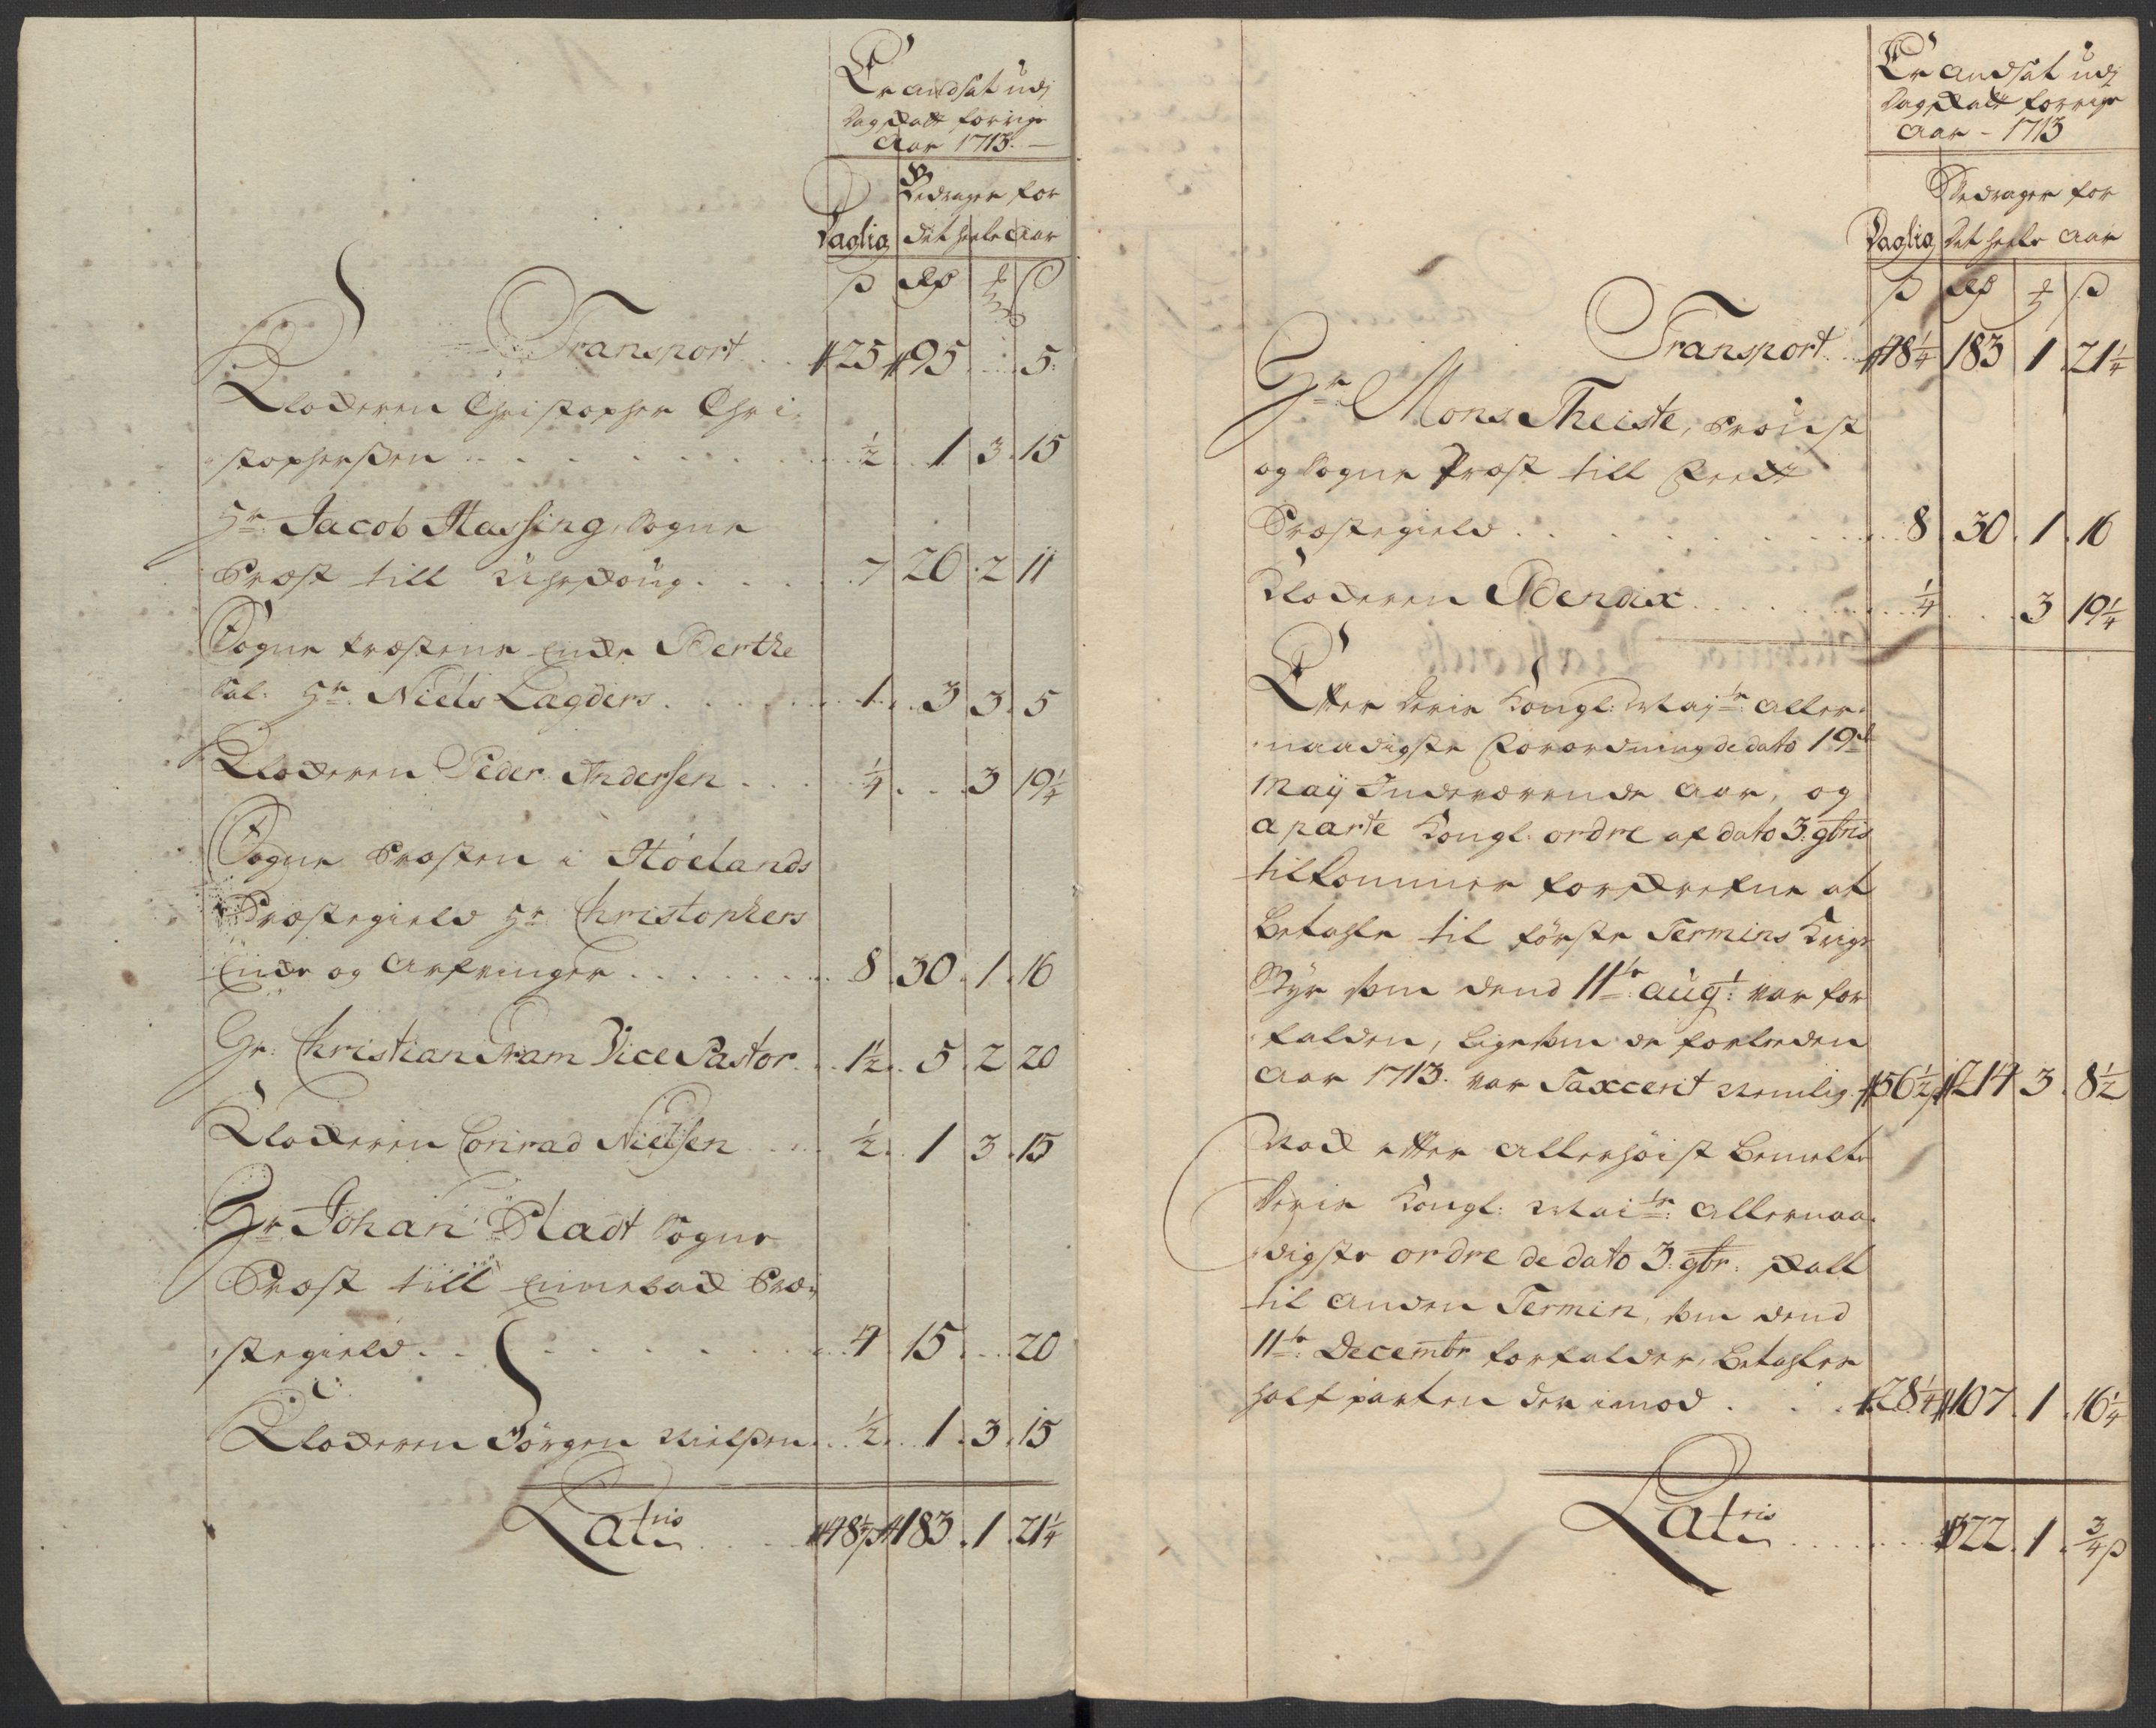 Er andsat udj
dagskatt forrige
Aar 1713. —
Bedrager for
Daglig det heele Aar
ß Rdr ß
Transport . . 25 95 . . 5.
Klockeren Christopher Chri-
stopherßen . . . ½ . 1 3 15
Hr. Jacob Hassing, Sogne
Præst till . . . 7 26 2 11
Sogne Præstens Encke Berthe
Sal. Hr. Niels Lagders . . . 1 . 3 3 5
Klockeren Peder Andersen . . . ¼ . . 3 19¼
Sogne Præsten i Höelands
Præstegield Hr. Christophers
Encke og Arfvinger . . . 8 30 1 16
Hr. Christian Vice Pastor . . 1½ 5 2 20
Klockeren Conrad Nielsen . . . ½ . 1 3 15
Hr. Johan Sogne
Præst till Ennebach Præ-
stegield . . . 4 15 . . 20
Klockeren Jörgen Nielßen . . ½ . 1 3 15
Lateris . . . 48¼ ß 183 1 21¼
Er andsat udj
dagskatt forrige
Aar - 1713
Bedrager for
Daglig det heele Aar
ß Rdr ß
Transport . . 48¼ 183 1 21¼
Hr. Mons Theiste, Provst
og Sogne Præst till
Præstegield . . . 8 30 1 16
Klockeren Bendix . . . ¼ . . 3 19¼
Efter deris Kongl: May:ts aller-
naadigste Forordning de dato 19de
Maij Indeværende Aar, og
aparte Kongl: ordre af dato 3: 9bris
tilkommer forskrefne at
betahle til förste Termins Krigs
Styr som dend 11te Aug: var for
falden, ligesom de forleden
Aar 1713. var Taxcerit Nemlig 56½ ß 214 3 8½
Mod efter allerhöist bemelte
deris Kongl: Mai:ts allernaa-
digste ordre de dato 3: 9br: skall
til anden Termin, som dend
11te Decembr forfalder, betahles
halfparten der imod . . . 28¼ 107 1 16¼
Lateris . . . 322 1 ¾ ß